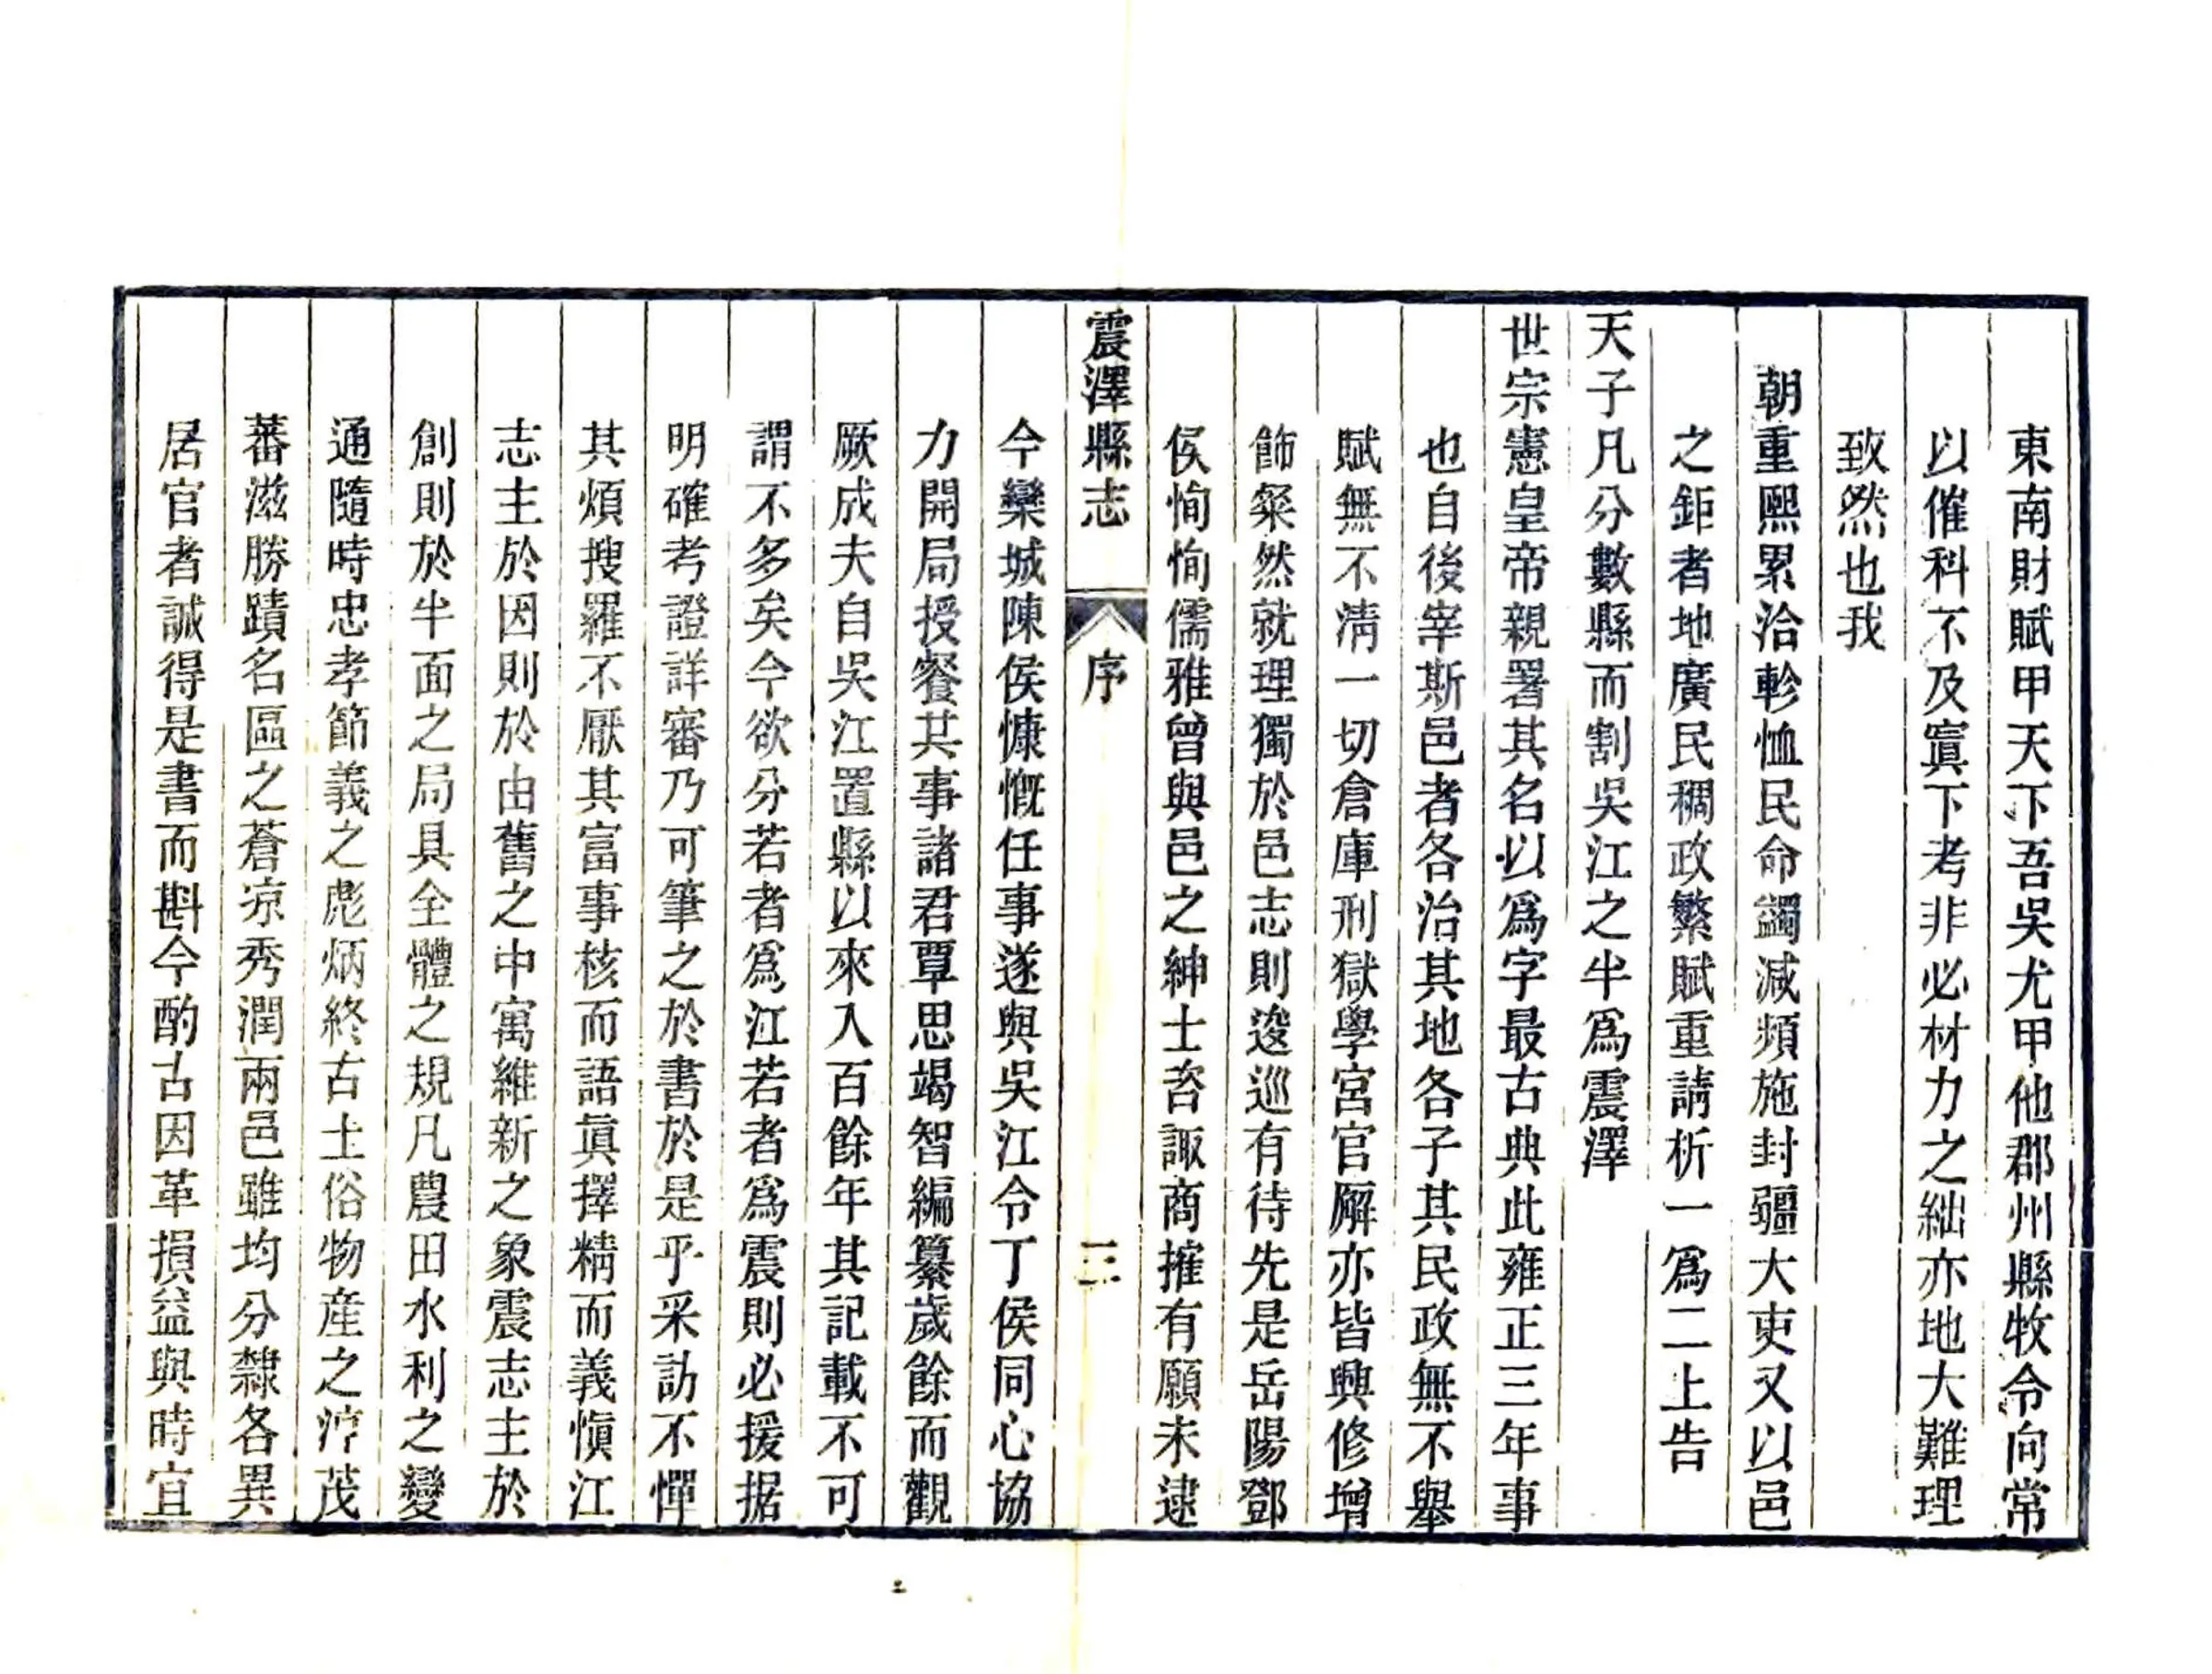 東南財賦甲天下吾吳尤甲他郡州縣牧令向常
以催科不及寘下考非必材力之絀亦地大難理
致然也我
朝重熙累洽軫恤民命蠲减頻施封疆大吏又以邑
之鉅者地廣民稠政繁賦重請析一爲二上告
天子凡分數縣而割吳江之半爲震澤
世宗憲皇帝親署其名以爲字最古典此雍正三年事
也自後宰斯邑者各治其地各子其民政無不舉
賦無不淸一切倉庫刑獄學宮官廨亦皆興修增
飾粲然就理獨於邑志則逡巡有待先是岳陽鄧
侯恂恂儒雅曾與邑之紳士咨諏商搉有願未逮
震澤縣志
序
三
今欒城陳侯慷慨任事遂與吳江令丁侯同心協
力開局授餐其事諸君覃思竭智編纂歲餘而觀
厥成夫自吳江置縣以來入百餘年其記載不可
謂不多矣今欲分若者爲江若者爲震則必援据
明確考證詳審乃可筆之於書於是乎采訪不憚
其煩搜羅不厭其富事核而語眞擇精而義愼江
志主於因則於由舊之中寓維新之象震志主於
創則於半面之局具全體之規凡農田水利之變
通隨時忠孝節義之彪炳終古土俗物産之淳茂
蕃滋勝蹟名區之蒼凉秀潤兩邑雖均分隸各異
居官者誠得是書而斟今酌古因革損益與時宜